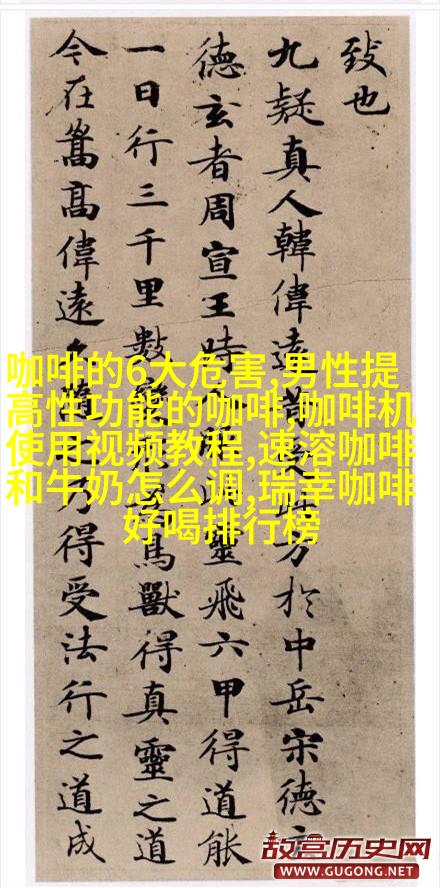 致也
九疑真人韓偉遠昔受方於中岳宋德玄
德玄者周宣王時服此靈飛六甲得道能
一日行三千里數變鳥獸得真靈之道
今在嵩高偉遠隨乃得受法行之道成
咖啡的6大危害,男性提
高性功能的咖啡,咖啡机
使用视频教程,速溶咖啡
和牛奶怎么调,瑞幸咖啡
好喝排行榜
故宫历史网
WWW.GUGONG.NET